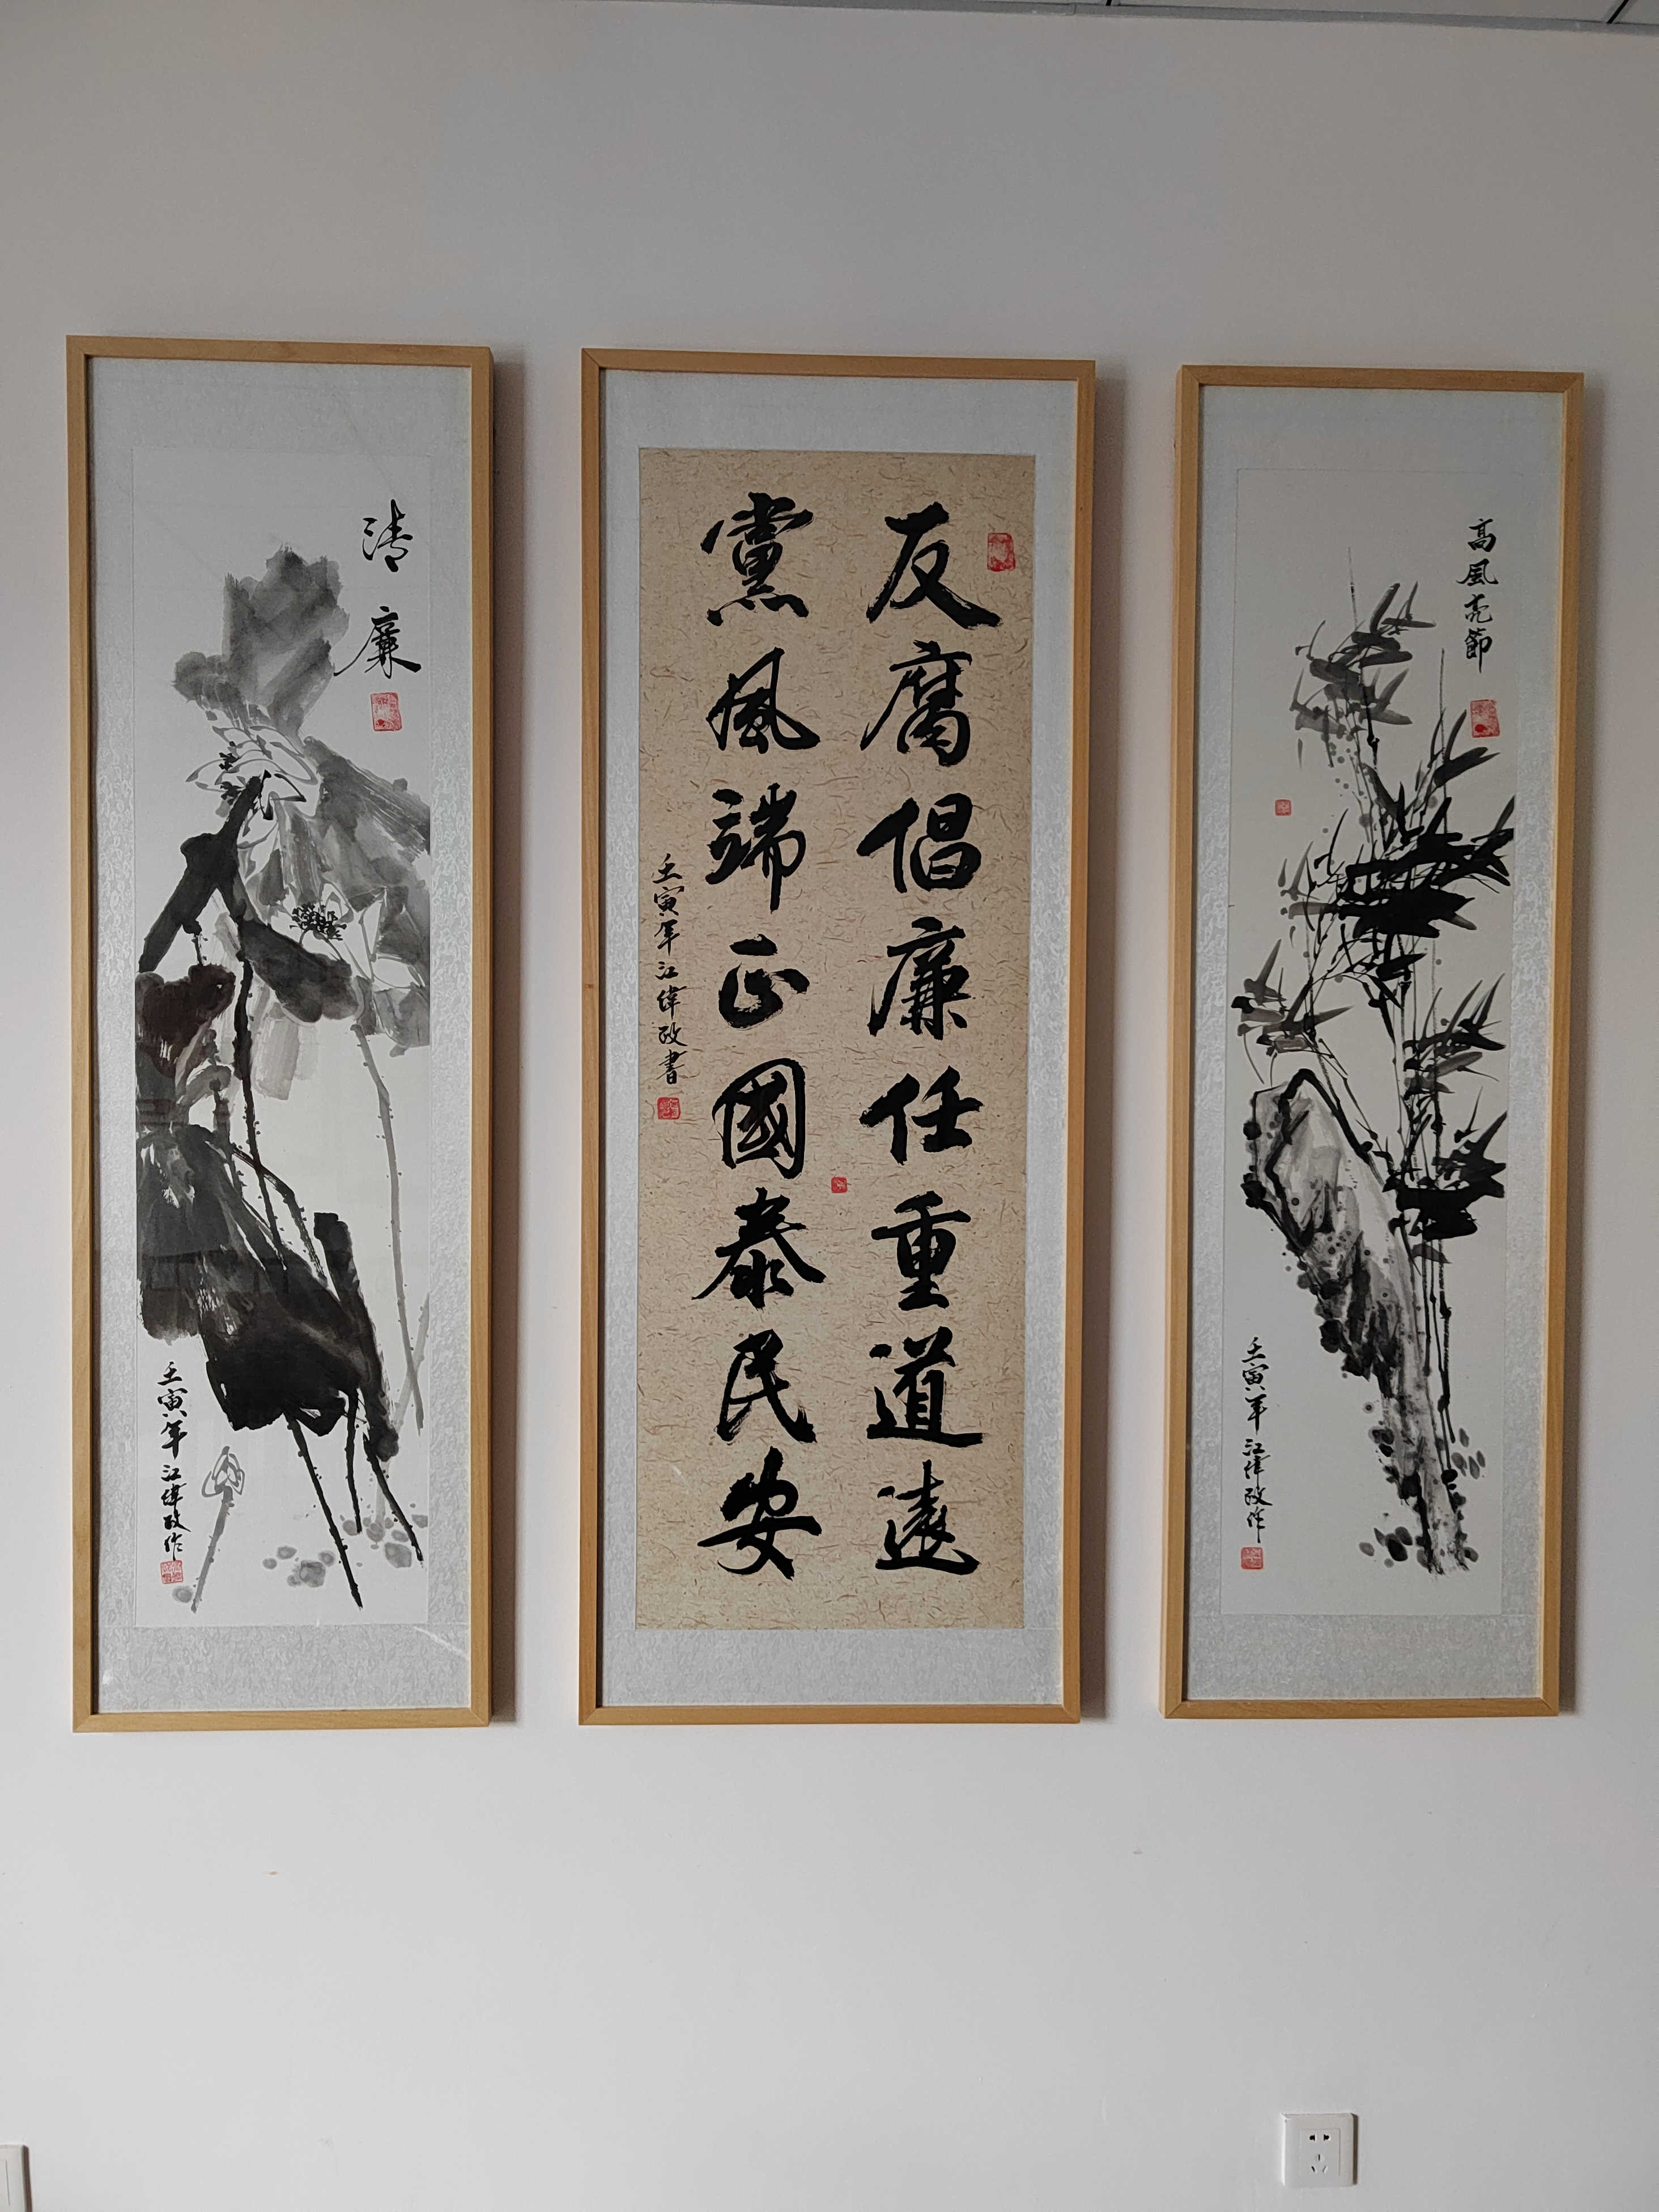 清廉
壬寅年江偉政作
反腐倡廉任重道遠
黨風端正國泰民安
壬寅年江偉政書
高風亮節
壬寅年江偉政作